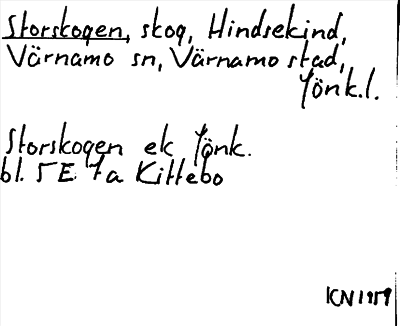 Storskogen, skog, Hindsekind,
Värnamo sn, Värnamo stad,
Jönk.l.
Storskogen ek Jönk.
bl. 5E 7a Kittebo
KN 1959